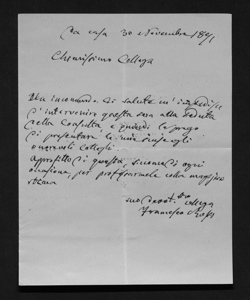 Da casa 30 Novembre 1871
Chiarissimo Collega
Un incomodo di salute m'impedisce
d'intervenire questa sera alla seduta
della Consulta e quindi la prego
di presentare le mie scuse agli
onorevoli colleghi.
Approfitto di questa, siccome di ogni
occasione, per professarmele colla maggiore
stima
suo devot.mo collega
Francesco